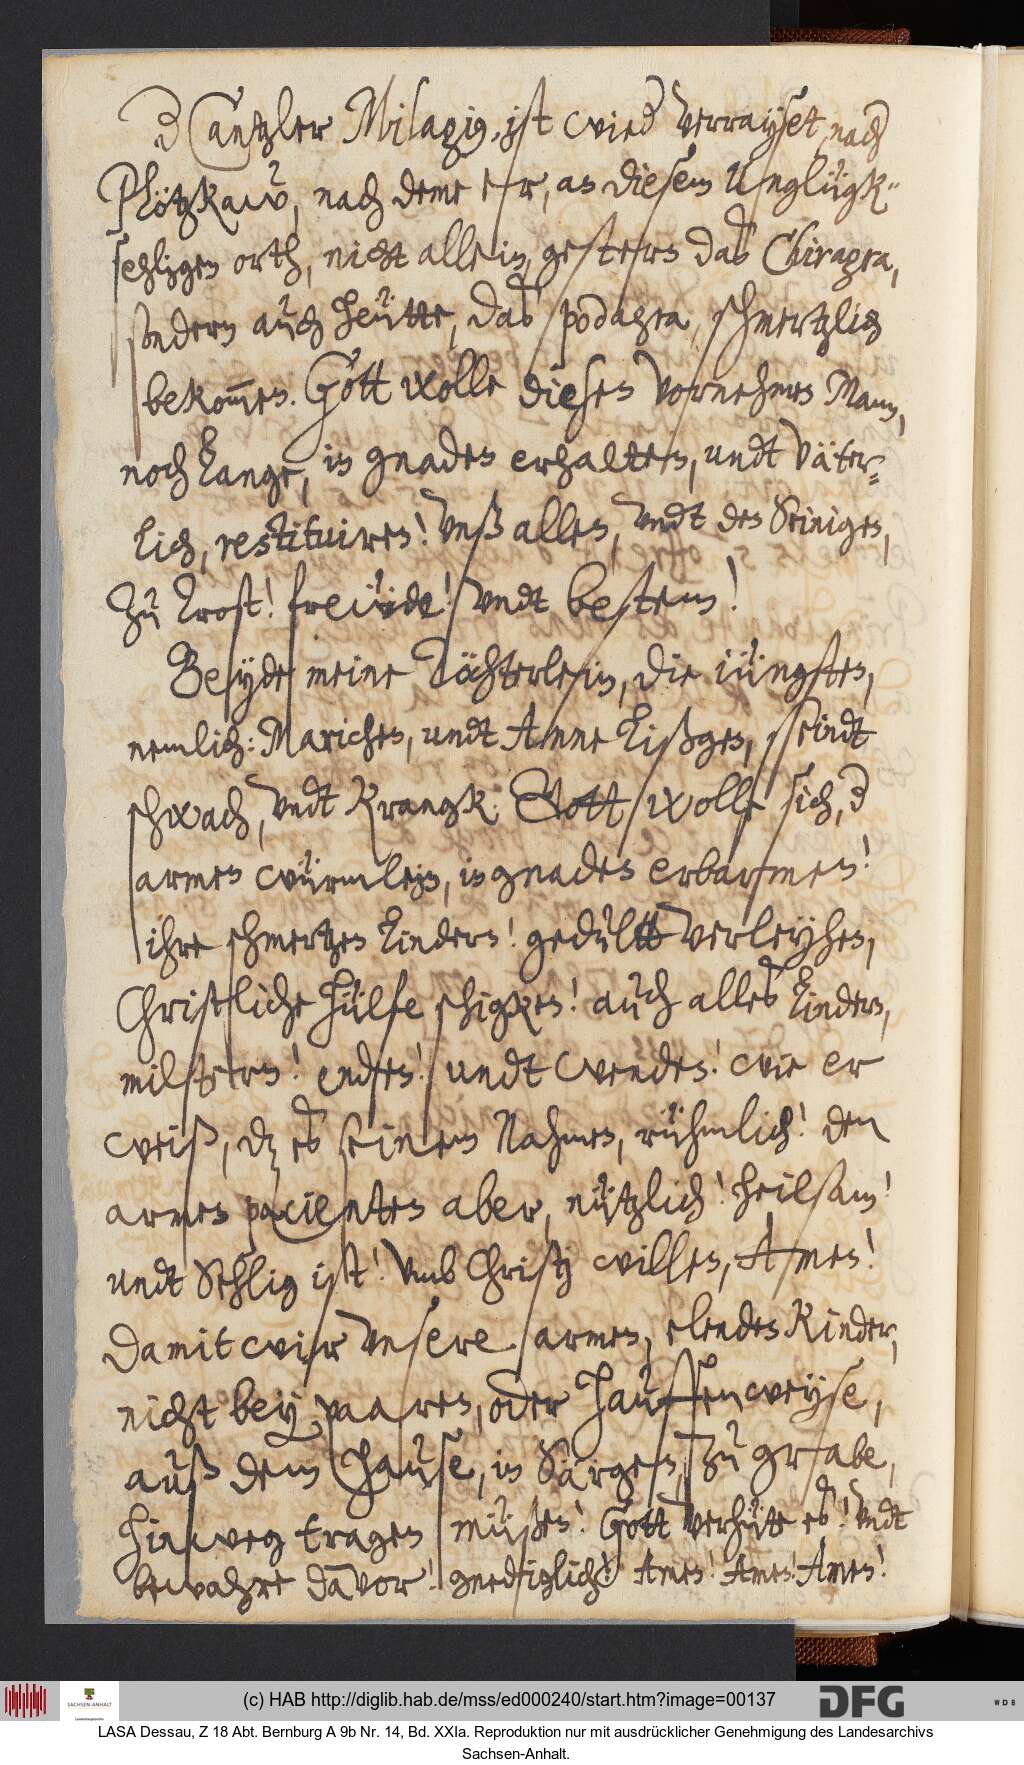 D Cantzler Milagius, ist wied verrayset, nach
Plötzkaw, nach deme Er, an diesem Unglügk¨
sehligen orth, nicht allein, gestern das Chiragra,
sondern auch heütte, das podagra, schmertzlich
bekommen. Gott wolle diesen vornehmen Mann,
noch lange, in gnaden erhalten, undt väter¨
lich, restituiren! Unß allen, undt den Seinigen,
zu Trost! freüde! undt bestem!
Beyde meine Töchterlein, die iüngsten,
nemlich: Mariechen, undt Anne Lißgen, seindt
schwach, undt Krangk. Gott wolle sich, d
armen würmlein, in gnaden erbarmen!
ihre schmertzen lindern! gedultt verleyhen,
Christliche hülfe schigken! auch alles lindern,
miltern! enden! undt wenden! wie er
weiß, dz es seinem Nahmen, rühmlich! den
armen pacienten aber, nützlich! heilsam!
undt Sehlig ist! umb Christj willen, Amen!
Damit wir unsere armen, elenden Kinder,
nicht bey paaren, oder hauffenweyse,
auß dem hause, in Särgen, zu grabe,
hinweg tragen müßen! Gott verhüte es! undt
bewahre davor! gnediglich! Amen! Amen! Amen!
(c) HAB http://diglib.hab.de/mss/ed000240/start.htm?image=00137
SACHSEN-ANHALT
DFG
WDB
LASA Dessau, Z 18 Abt. Bernburg A 9b Nr. 14, Bd. XXIa. Reproduktion nur mit ausdrücklicher Genehmigung des Landesarchivs
Sachsen-Anhalt.